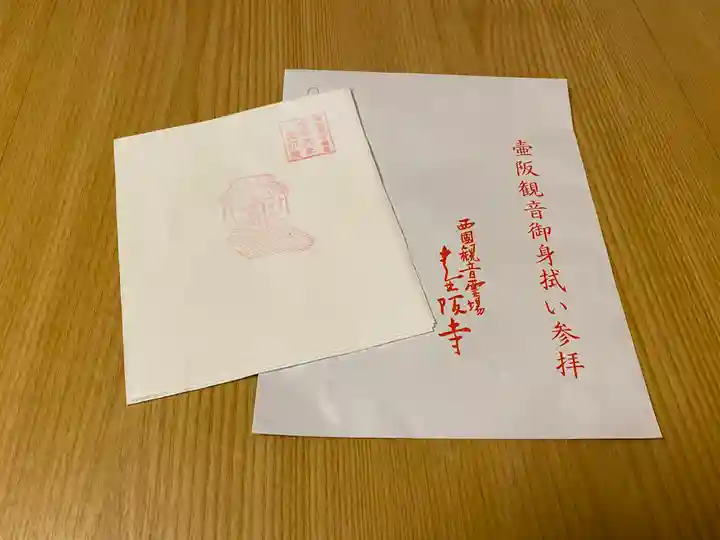 壷阪観音御身拭い参拝
西國観音霊場
壷阪寺